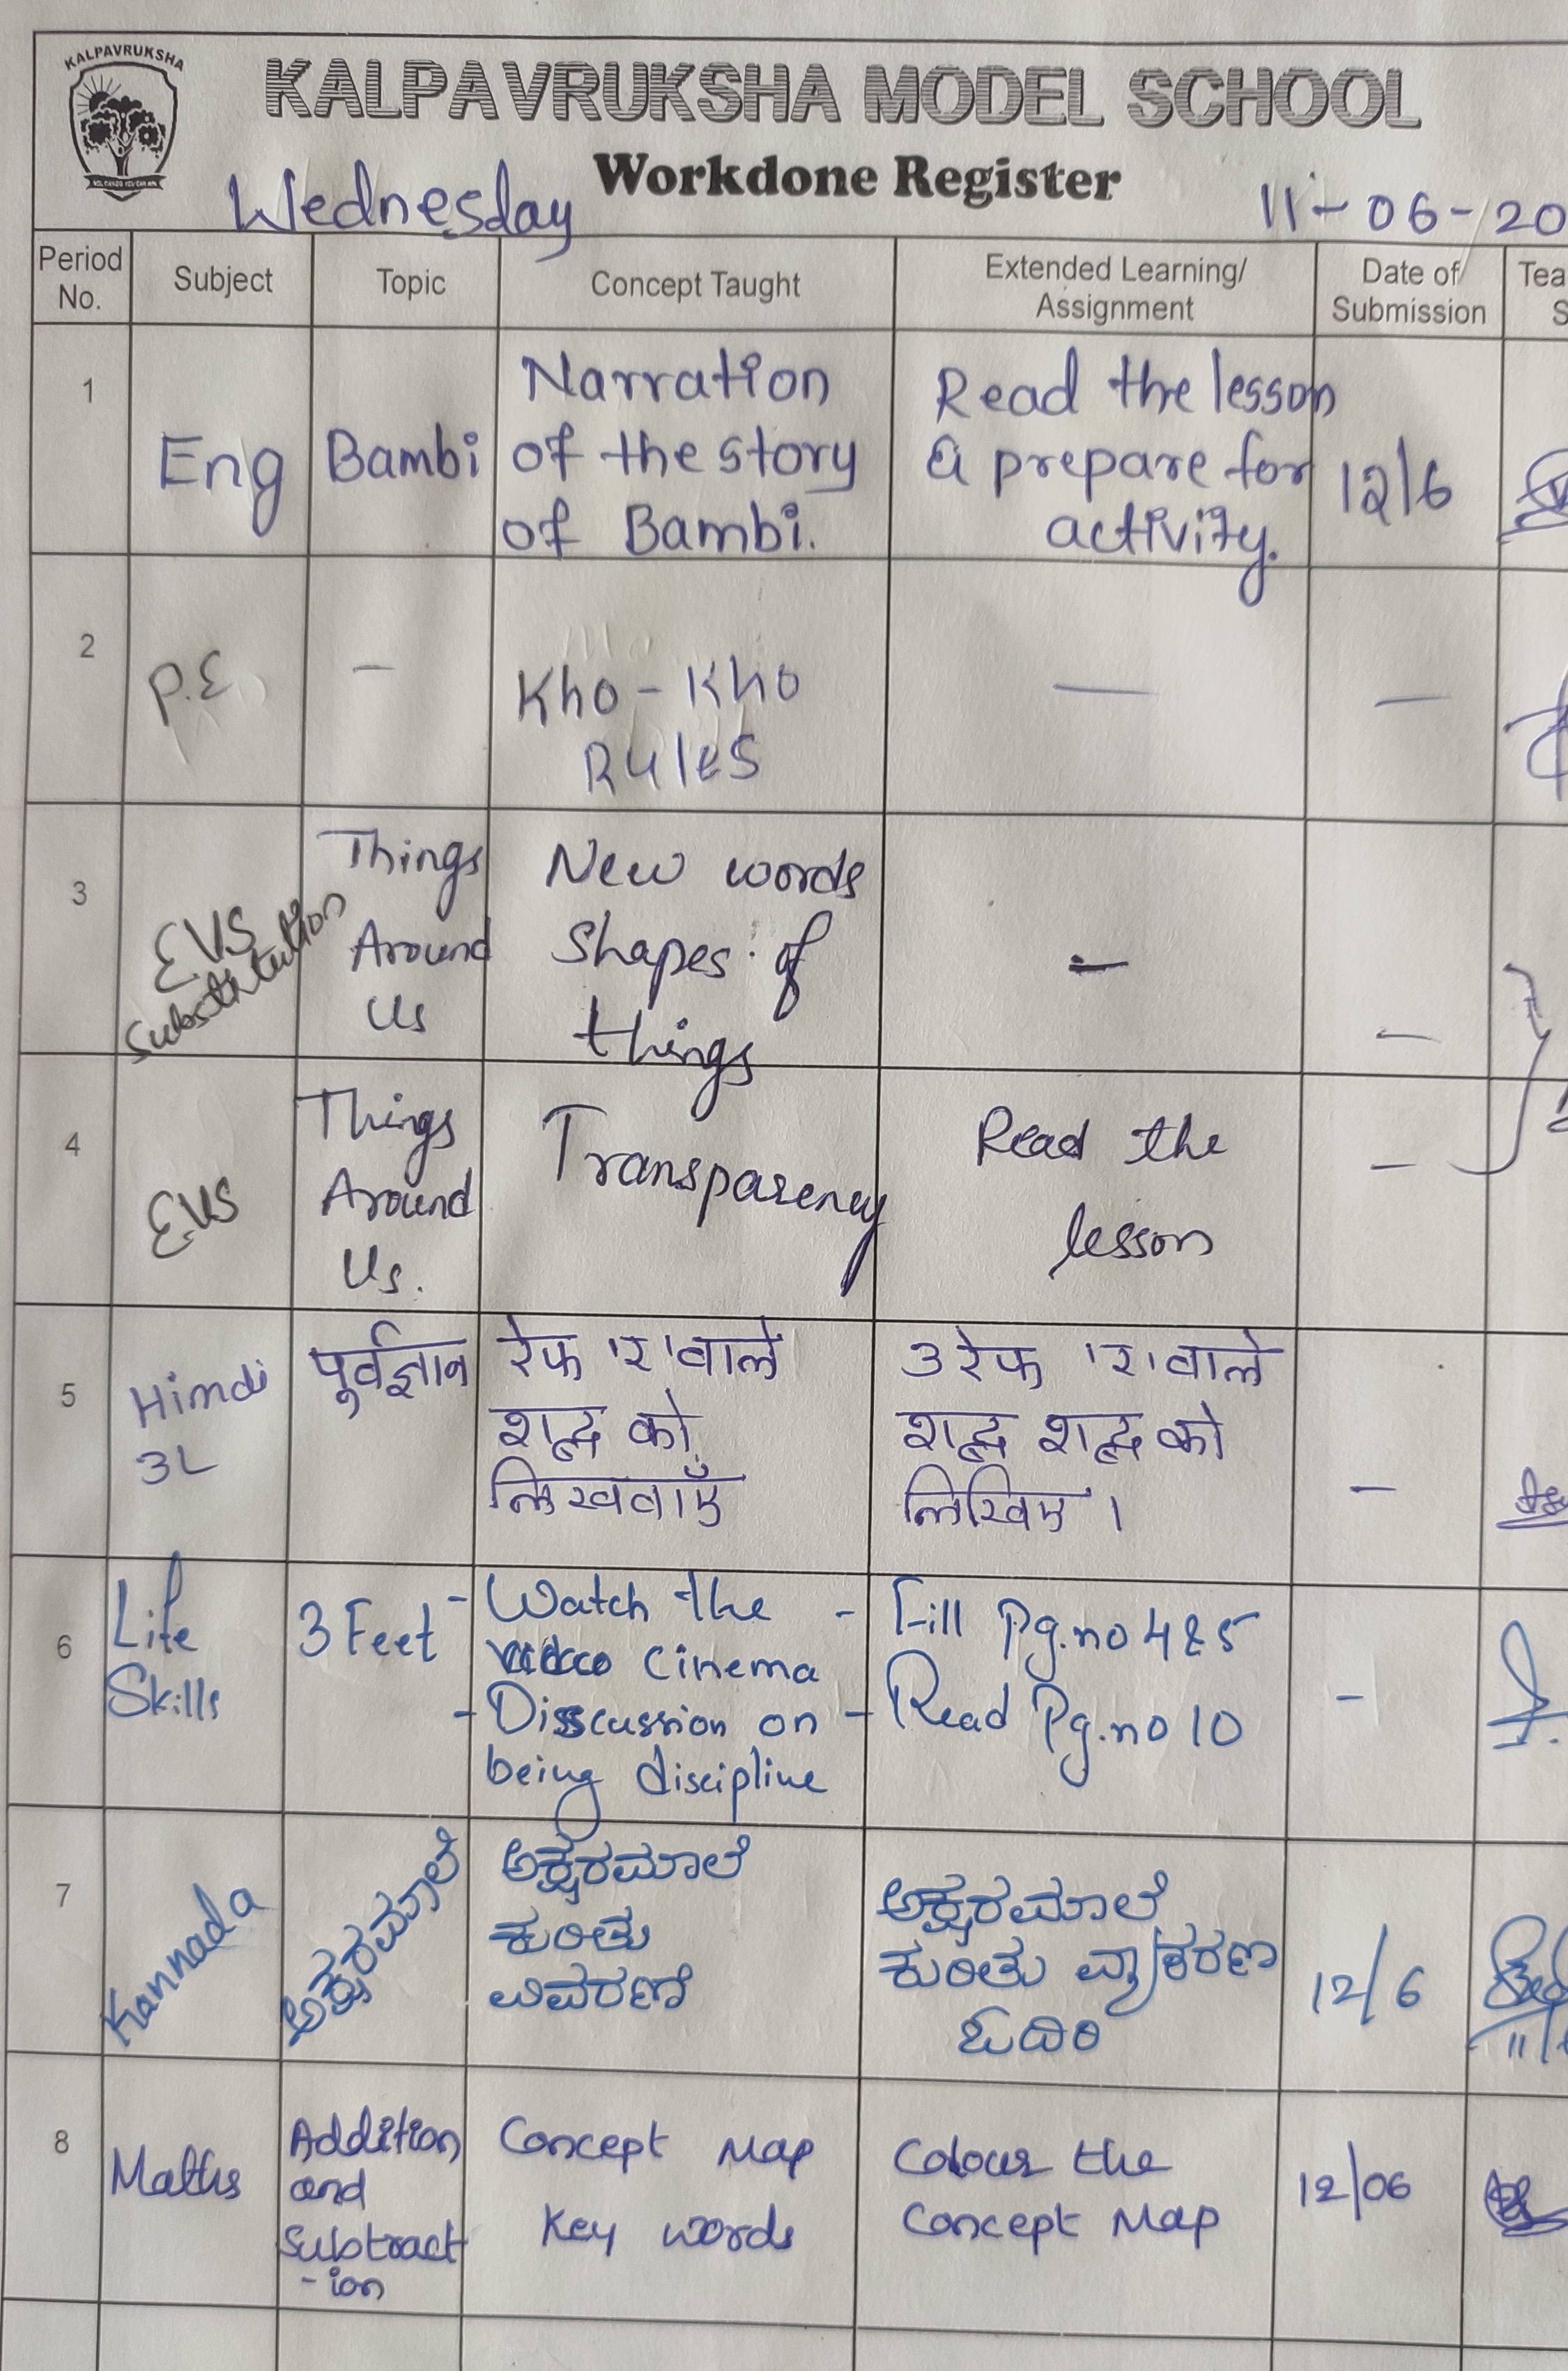 KALPAVRUKSHA
KALPAVRUKSHA MODEL SCHOOL
Workdone Register
Wednesday
11-06-20
Period No.
Subject
Topic
Concept Taught
Extended Learning/
Assignment
Date of
Submission
Tea
S
1
Eng
Bambi
Narration
of the story
of Bambi.
Read the lesson
& prepare for
activity.
12/6
2
P.E
-
Kho-Kho
Rules
-
-
3
EVS
Substitution
Things
Around
Us
New words
Shapes of
things
-
-
4
EVS
Things
Around
Us.
Transparency
Read the
lesson
-
5
Hindi
3L
पूर्वज्ञान
रेफ 'र' वाले
शब्द को
लिखवाएँ
3 रेफ 'र' वाले
शब्द शब्द को
लिखिए।
-
6
Life
Skills
3 Feet
- Watch the
cinema
- Disscussion on
being discipline
- Fill Pg.no 4 & 5
- Read Pg.no 10
-
7
Kannada
ಅಕ್ಷರಮಾಲೆ
ಅಕ್ಷರಮಾಲೆ
ಕುರಿತು
ವಿವರಣೆ
ಅಕ್ಷರಮಾಲೆ
ಕುರಿತು ವ್ಯಾಕರಣ
ಓದಿರಿ
12/6
11/
8
Maths
Addition
and
Subtract
-ion
Concept Map
Key words
Colour the
Concept Map
12/06